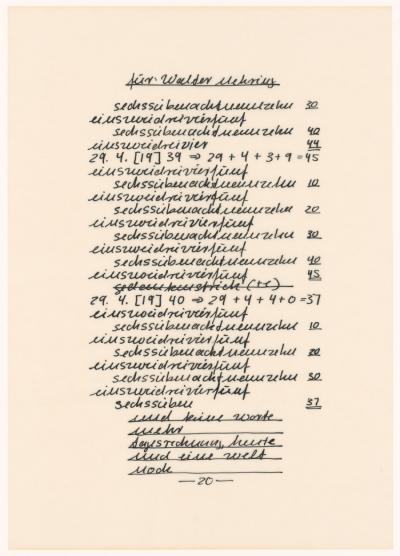 für: Walter Mehring
sechssiebenachtneunzehn 30
einszweidreivierfünf
sechssiebenachtneunzehn 40
einszweidreivier 44
29. 4. [19] 39 ⇒ 29 + 4 + 3 + 9 = 45
einszweidreivierfünf
sechssiebenachtneunzehn 10
einszweidreivierfünf
sechssiebenachtneunzehn 20
einszweidreivierfünf
sechssiebenachtneunzehn 30
einszweidreivierfünf
sechssiebenachtneunzehn 40
einszweidreivierfünf 45
gedankenstrich
29. 4. [19] 40 ⇒ 29 + 4 + 4 + 0 = 37
einszweidreivierfünf
sechssiebenachtneunzehn 10
einszweidreivierfünf
sechssiebenachtneunzehn 20
einszweidreivierfünf
sechssiebenachtneunzehn 30
einszweidreivierfünf
sechssieben 37
und keine worte
mehr
tagesrechnung, heute
und eine welt
noch
— 20 —